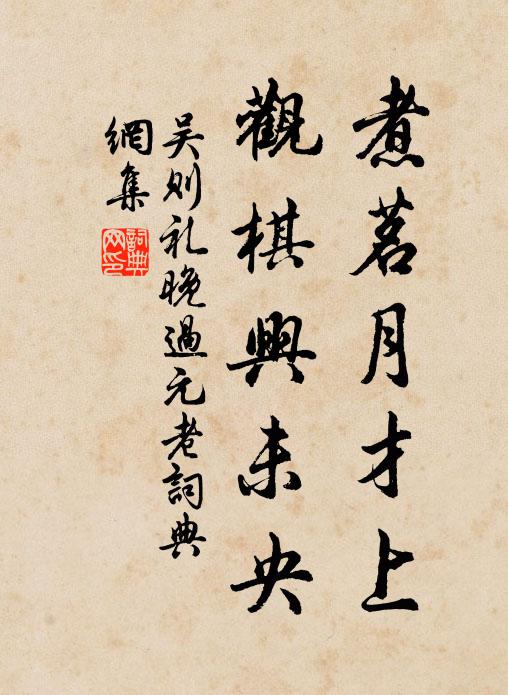 煮茗月才上
觀棋興未央
吴则礼晚過元老詞典
網集
詞典
网印